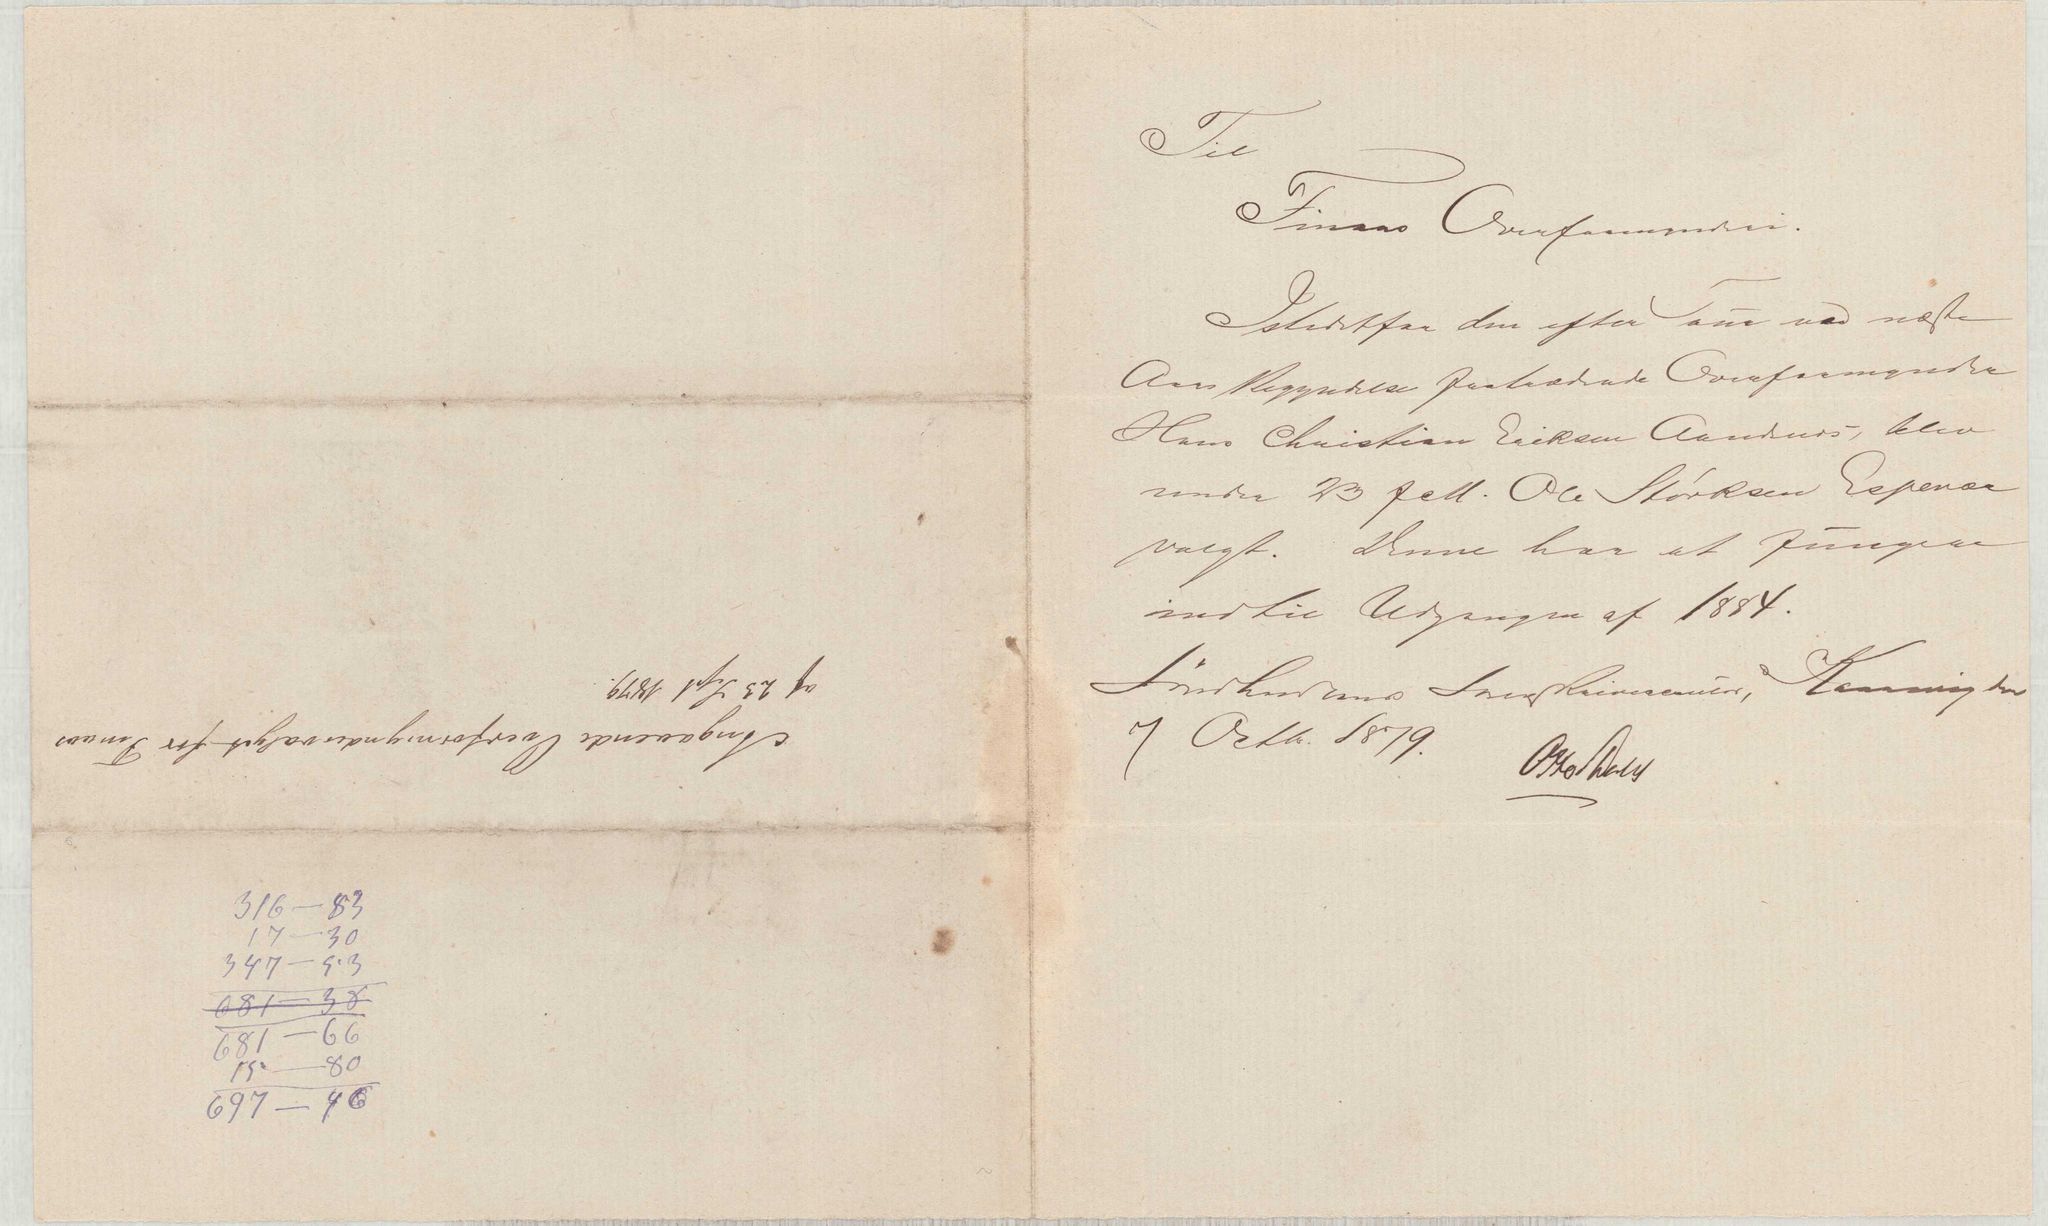 Til
Finaas Overformynderi.
Istedetfor den efter Tour ved næste
Aars Begyndelse fratrædende Overformynder
Hans Christian Eriksen Aandnes, blev
under 23 f.M. Ole Størksen Espevær
valgt. Denne har at fungere
indtil Udgangen af 1884.
Søndhordlands Sorenskriverembede, den
7 Octbr. 1879.
Angaaende Overformyndervalget for Finaas
af 23 Sept 1879.
316 — 83
17 — 30
347 — 53
681 — 38
681 — 66
15 — 80
697 — 46